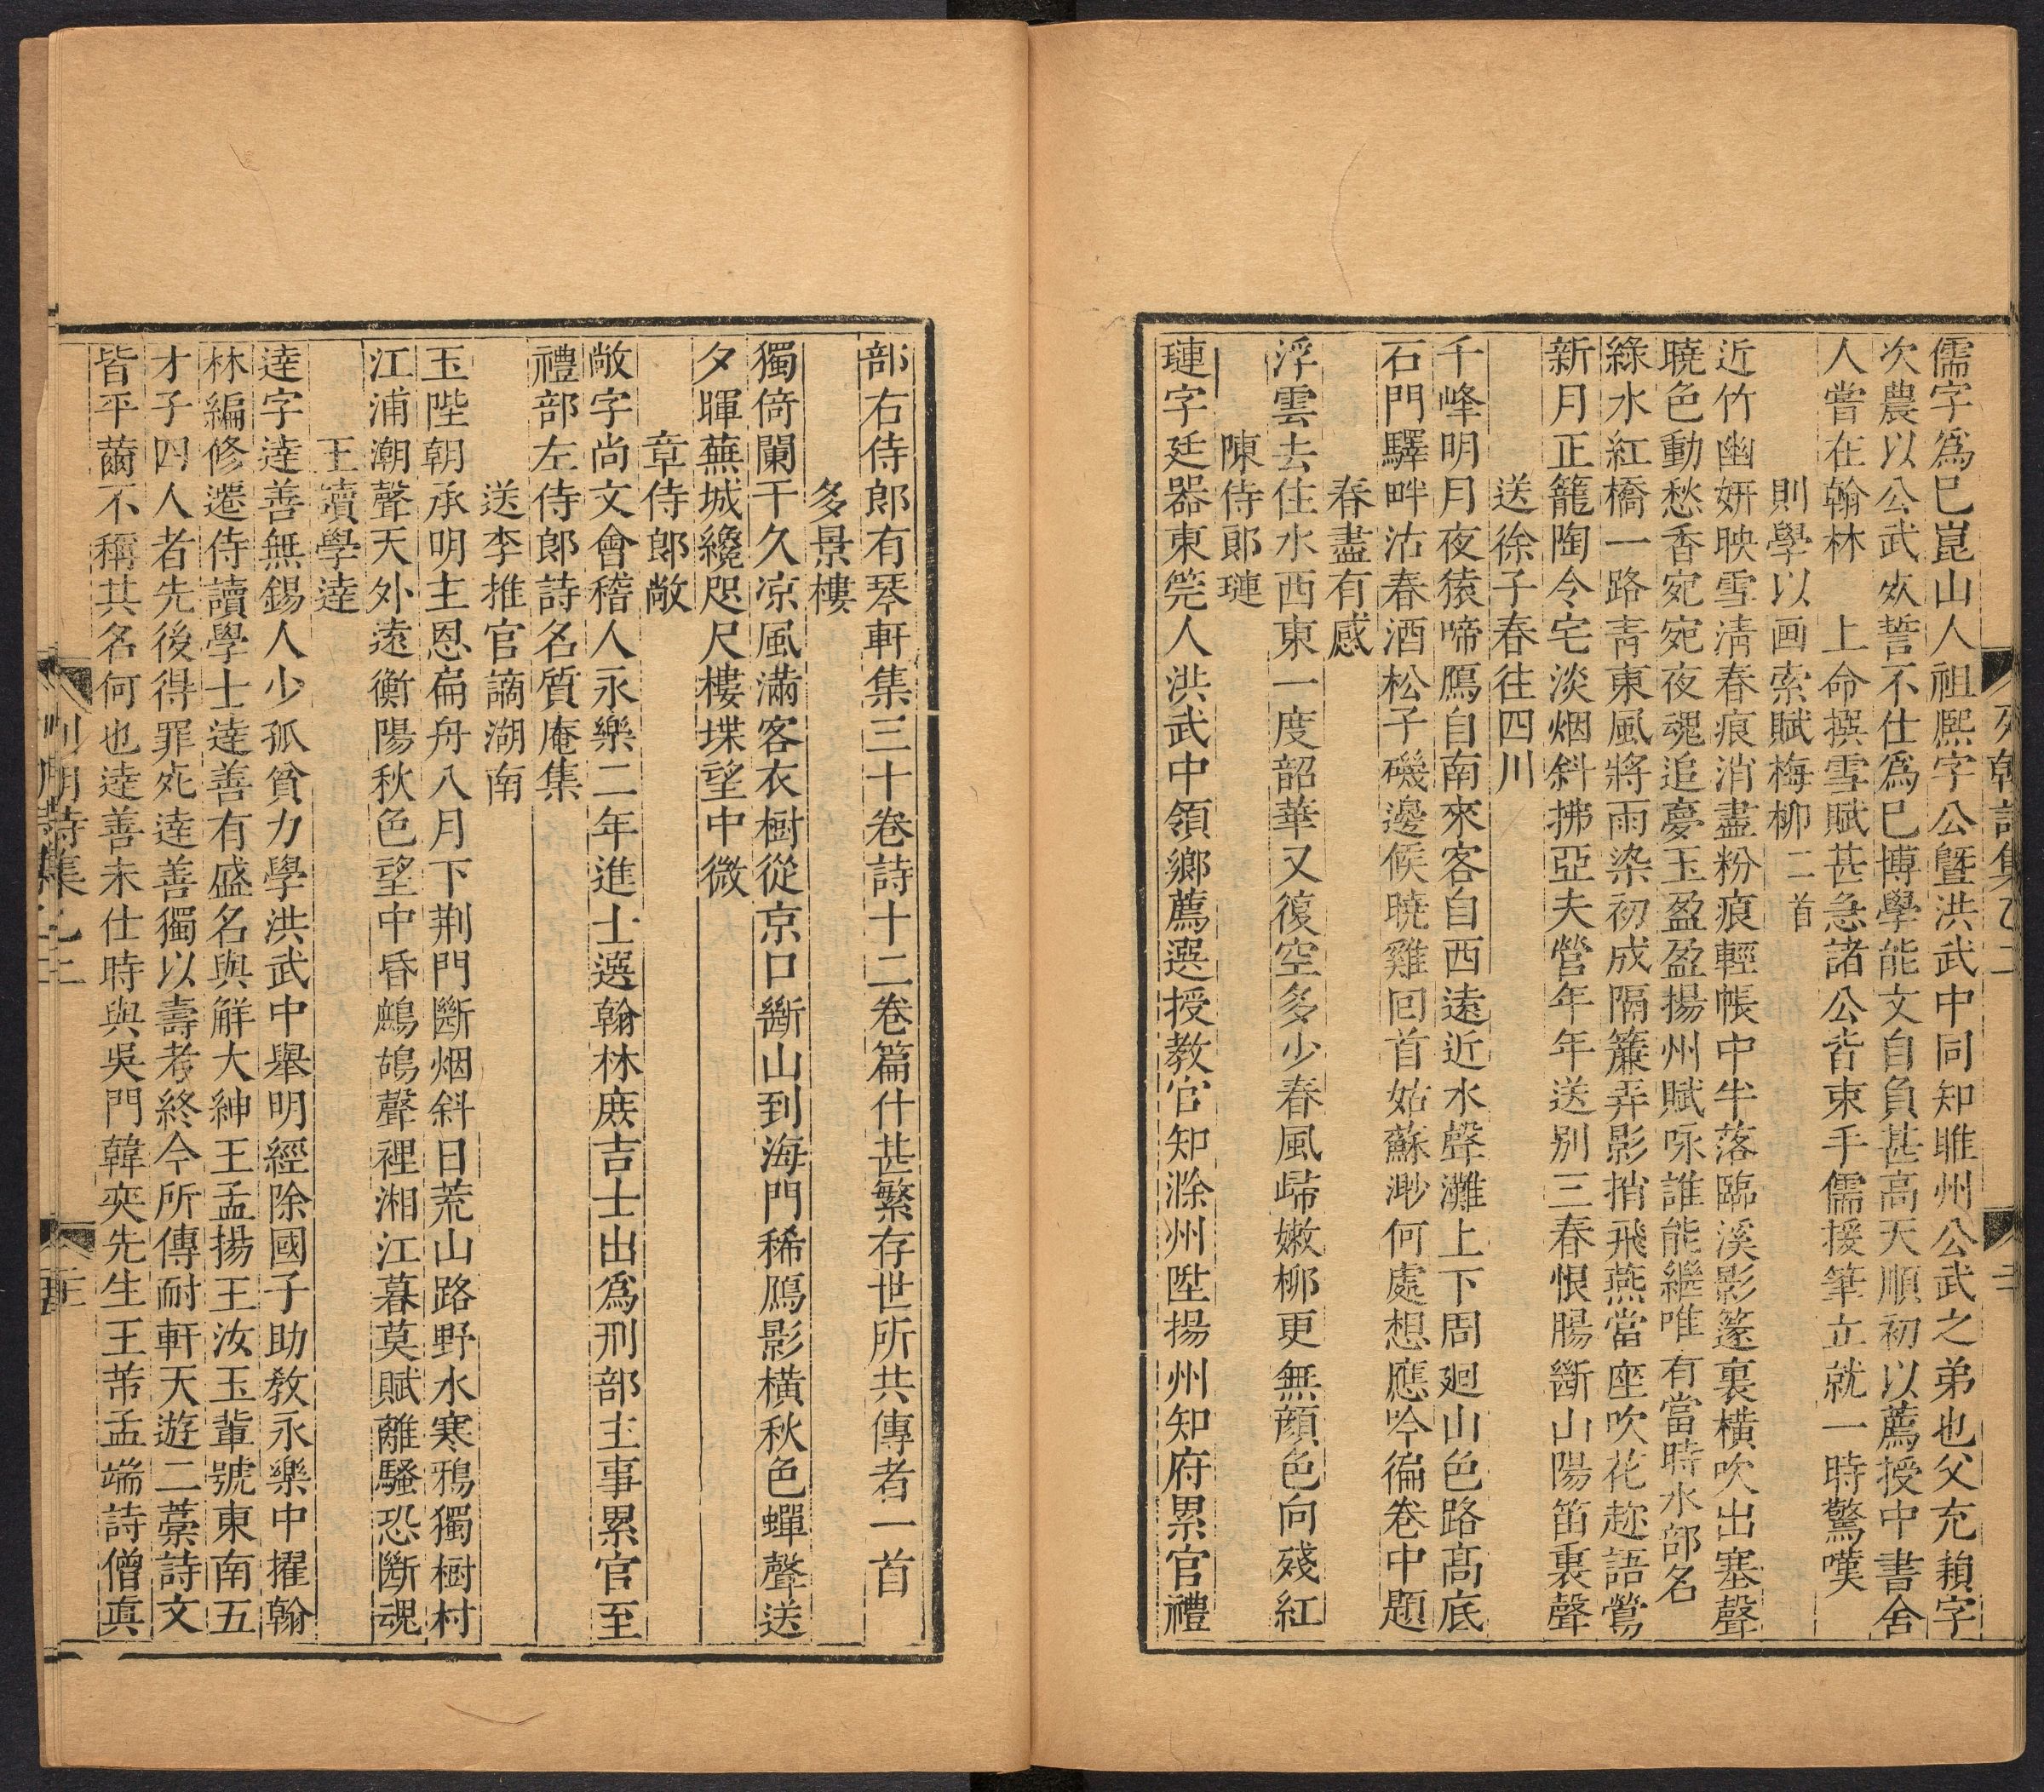 儒字爲巳崑山人祖熈字公曁洪武中同知睢州公武之弟也父充頴字
次農以公武㱙誓不仕爲巳博學能文自負甚高天順初以薦授中書舍
人嘗在翰林　上命撰雪賦甚急諸公皆束手儒援筆立就一時驚嘆
則學以画索賦梅柳二首
近竹幽妍映雪清春痕消盡粉痕輕帳中半落臨溪影篴裏橫吹出塞聲
曉色動愁香宛宛夜魂追夢玉盈盈揚州賦咏誰能繼唯有當時水部名
綠水紅橋一路靑東風將雨染初成隔簾弄影捎飛燕當座吹花趂語鶯
新月正籠陶令宅淡烟斜拂亞夫營年年送别三春恨腸斷山陽笛裏聲
送徐子春往四川
千峰明月夜猿啼鴈自南來客自西遠近水聲灘上下周廻山色路高底
石門驛畔沽春酒松子磯邊候曉雞回首姑蘇渺何處想應吟徧卷中題
春盡有感
浮雲去住水西東一度韶華又復空多少春風歸嫩柳更無顔色向殘紅
陳侍郞璉
璉字廷器東筦人洪武中領鄉薦選授教官知滁州陞揚州知府累官禮
部右侍郎有琴軒集三十卷詩十二卷篇什甚繁存世所共傳者一首
多景樓
獨倚闌干久凉風滿客衣樹從京口斷山到海門稀鴈影橫秋色蟬聲送
夕暉蕪城纔咫尺樓堞望中微
章侍郎敞
敞字尚文會稽人永樂二年進士選翰林庶吉士出爲刑部主事累官至
禮部左侍郎詩名質庵集
送李推官謫湖南
玉陛朝承明主恩扁舟八月下荆門斷烟斜日荒山路野水寒鴉獨樹村
江浦潮聲天外遠衡陽秋色望中昏鷓鴣聲裡湘江暮莫賦離騷恐斷魂
王讀學達
達字達善無錫人少孤貧力學洪武中舉明經除國子助教永樂中擢翰
林編修遷侍讀學士達善有盛名與解大紳王孟揚王汝玉輩號東南五
才子四人者先後得罪死達善獨以壽考終今所傳耐軒天遊二藁詩文
皆平薾不稱其名何也達善未仕時與吳門韓奕先生王芾孟端詩僧眞